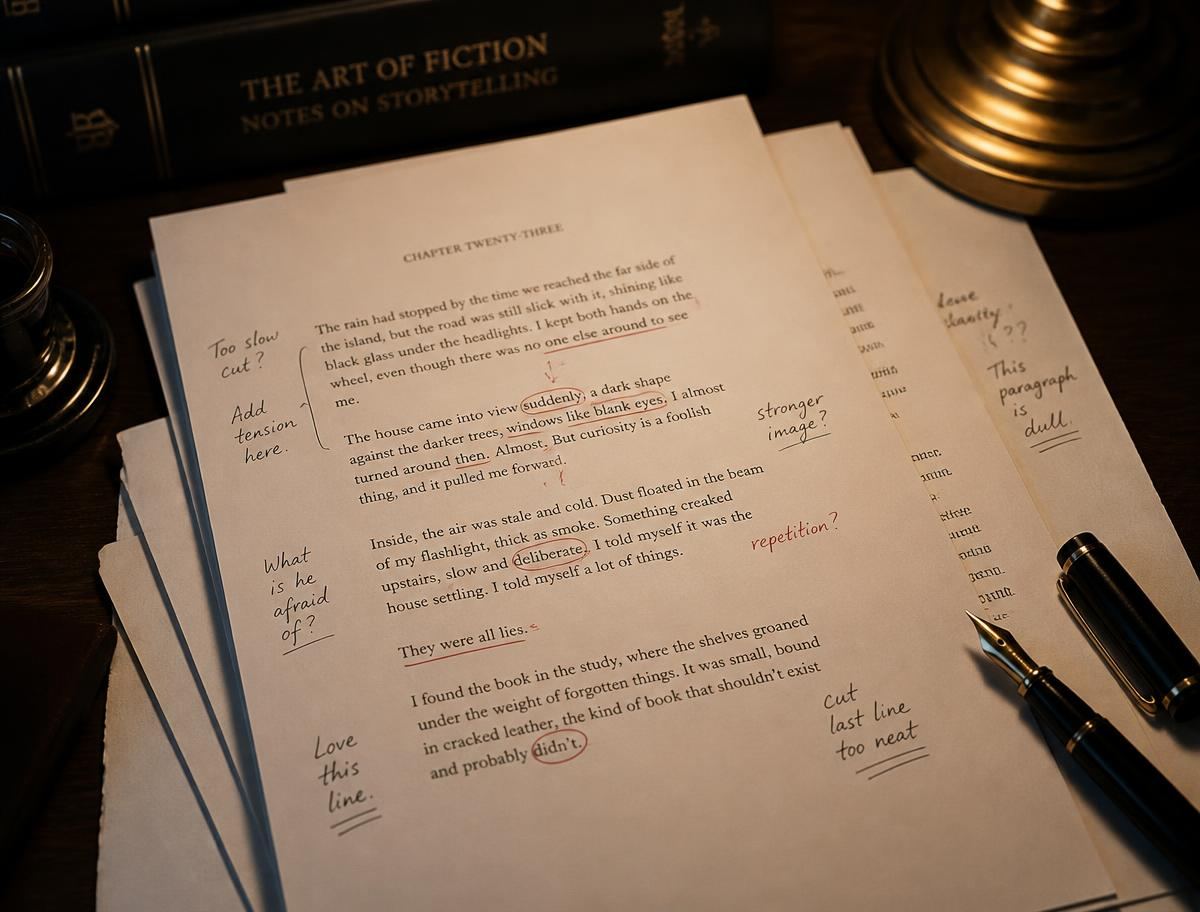 THE ART OF FICTION
NOTES ON STORYTELLING
CHAPTER TWENTY-THREE
The rain had stopped by the time we reached the far side of
the island, but the road was still slick with it, shining like
black glass under the headlights. I kept both hands on the
wheel, even though there was no one else around to see
me.
Too slow
cut?
Add
tension
here.
The house came into view suddenly, a dark shape
against the darker trees, windows like blank eyes. I almost
turned around then. Almost. But curiosity is a foolish
thing, and it pulled me forward.
stronger
image?
Inside, the air was stale and cold. Dust floated in the beam
of my flashlight, thick as smoke. Something creaked
upstairs, slow and deliberate. I told myself it was the
house settling. I told myself a lot of things.
repetition?
What
is he
afraid
of?
They were all lies.
I found the book in the study, where the shelves groaned
under the weight of forgotten things. It was small, bound
in cracked leather, the kind of book that shouldn't exist
and probably didn't.
Love
this
line.
cut
last line
too neat
This
paragraph
is
dull.